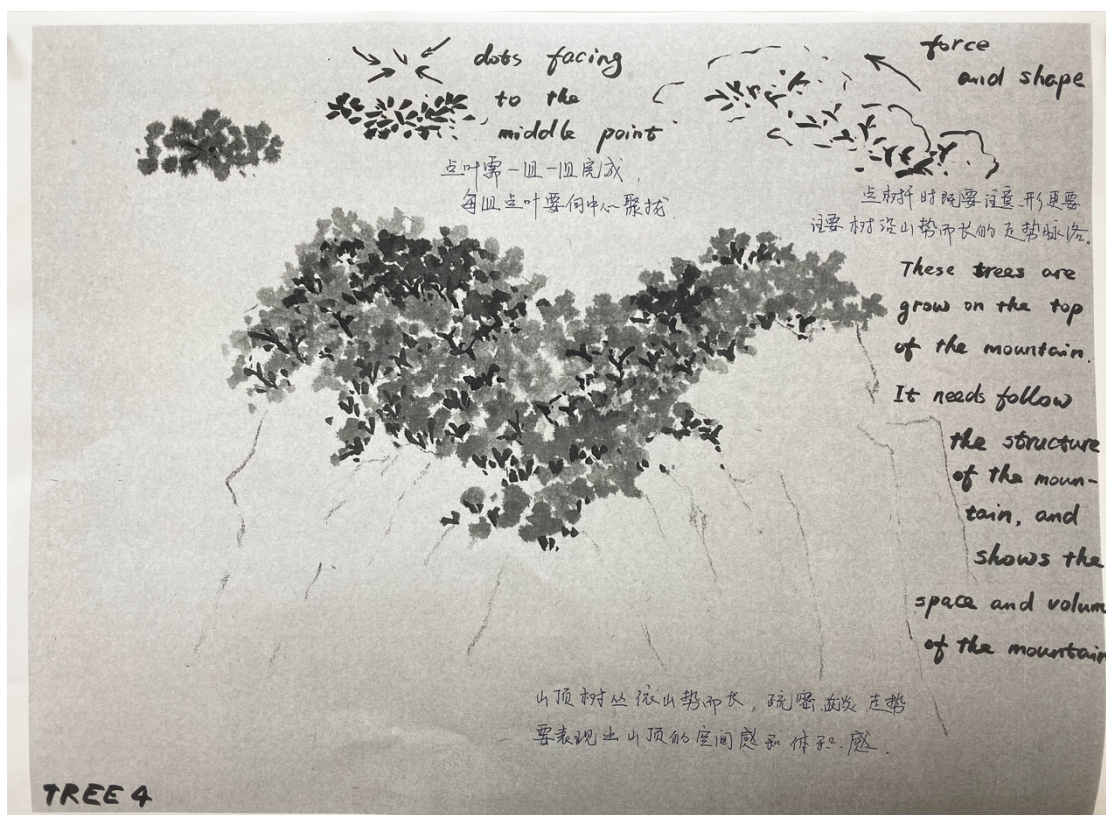 dots facing
to the
middle point
点叶需一组一组完成,
每组点叶要向中心聚拢.
force
and shape
点树杆时既要注意形更要
注要树沿山势而长的走势脉络。
These trees are
grow on the top
of the mountain.
It needs follow
the structure
of the moun-
tain, and
shows the
space and volum
of the mountain
山顶树丛依山势而长, 疏密 走势
要表现出山顶的空间感和体积感.
TREE 4